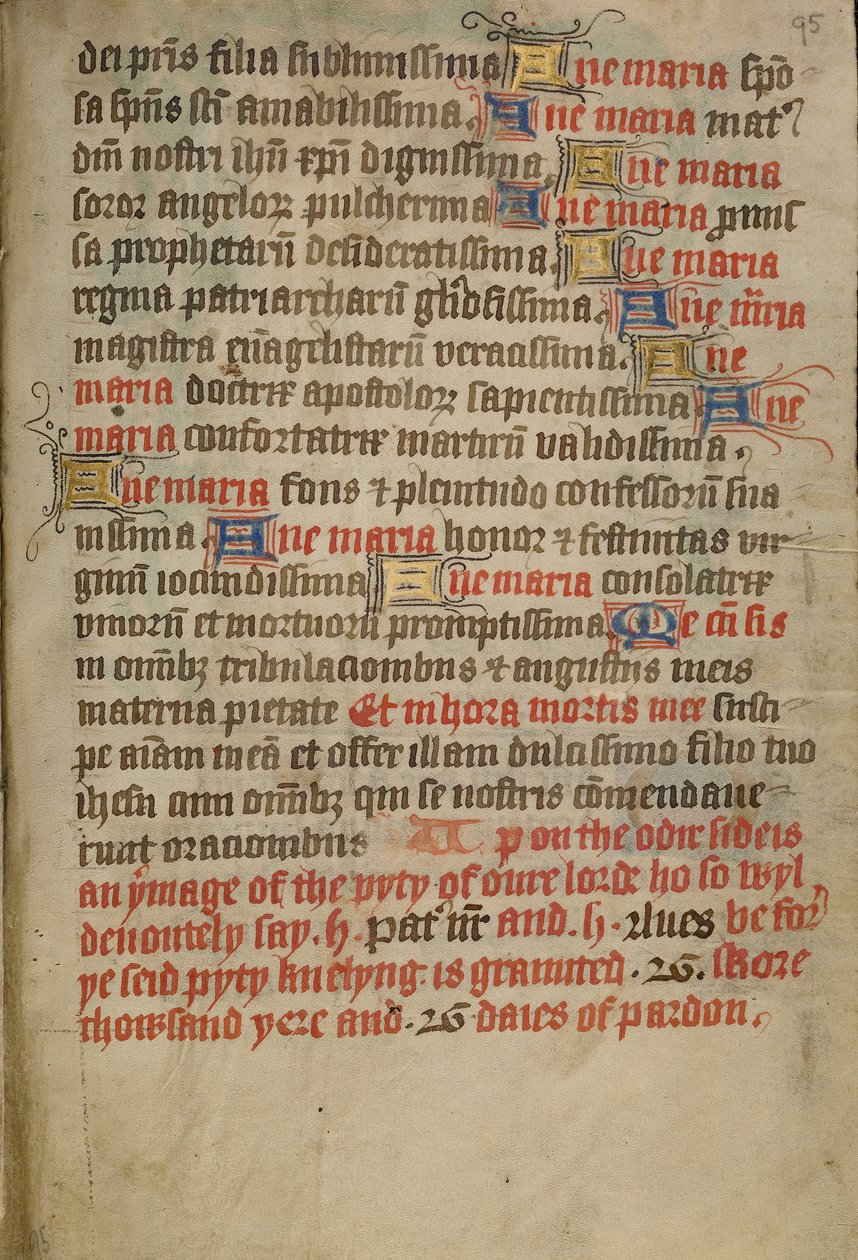 95
dei pr̄is filia sublimissima Aue maria spō
sa sp̄us sc̄i amabilissima. Aue maria mat᾽
dn̄i nostri ihū xp̄i dignissima. Aue maria
soror angeloꝝ pulcherima Aue maria ꝓmis
sa prophetarū desideratissima. Aue maria
regina patriarcharū gl̄iosissima. Aue mr̄ia
magistra eūagelistarū veracissima. Aue
maria doctrix apostoloꝝ sapientissima Aue
maria confortatrix martirū validissima.
Aue maria fons ⁊ plenitudo confessorū sua
uissima. Aue maria honor ⁊ festiuitas vir
ginū iocundissima Aue maria consolatrix
viuorū et mortuorū promptissima. Me cū sis
in omībꝫ tribulacionibus ⁊ angustiis meis
materna pietate Et in hora mortis mee susci
pe aīam meā et offer illam dulcissimo filio tuo
ihesu cum omībꝫ qui se nostris cōmendaue
runt oracionibus Vp on the odir side is
an ymage of the pyty of oure lorde ho so wyl
deuoutely say . h . pat᾽ nr̄ and . h . Aues be for
ye seid pyty knelyng is graunted . 26 . skore
thowsand yere and . 26 daies of pardon .
95